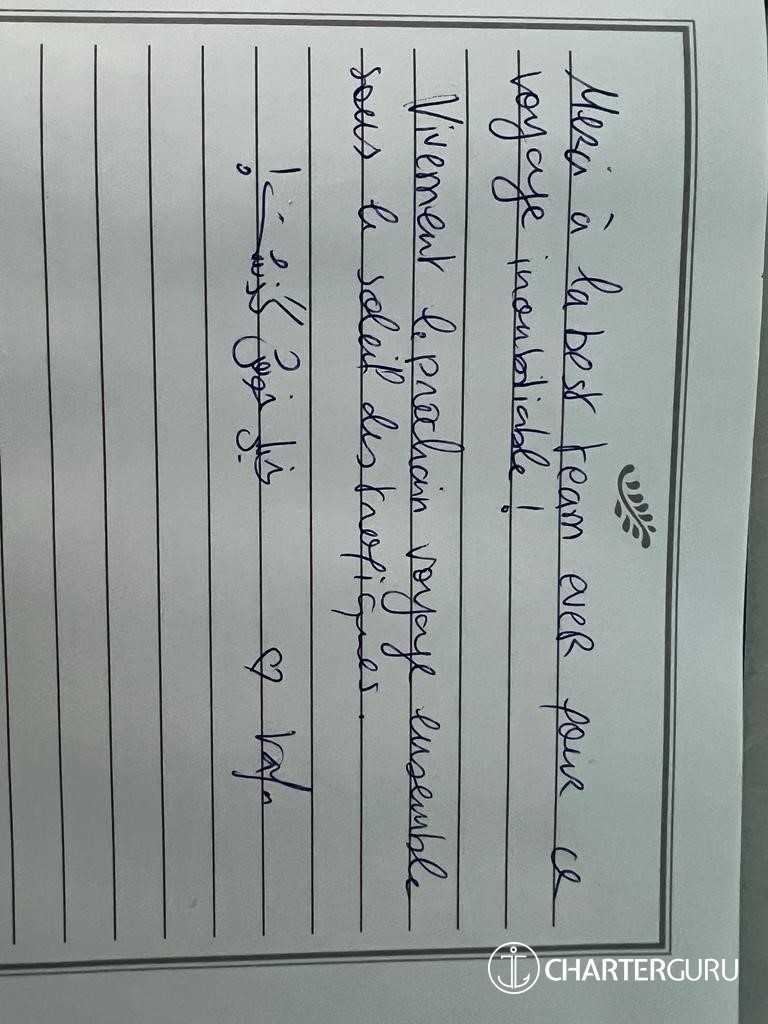 Merci à la best team ever pour ce
voyage inoubliable !
Vivement le prochain voyage ensemble
sous le soleil des tropiques.
♡
CHARTERGURU